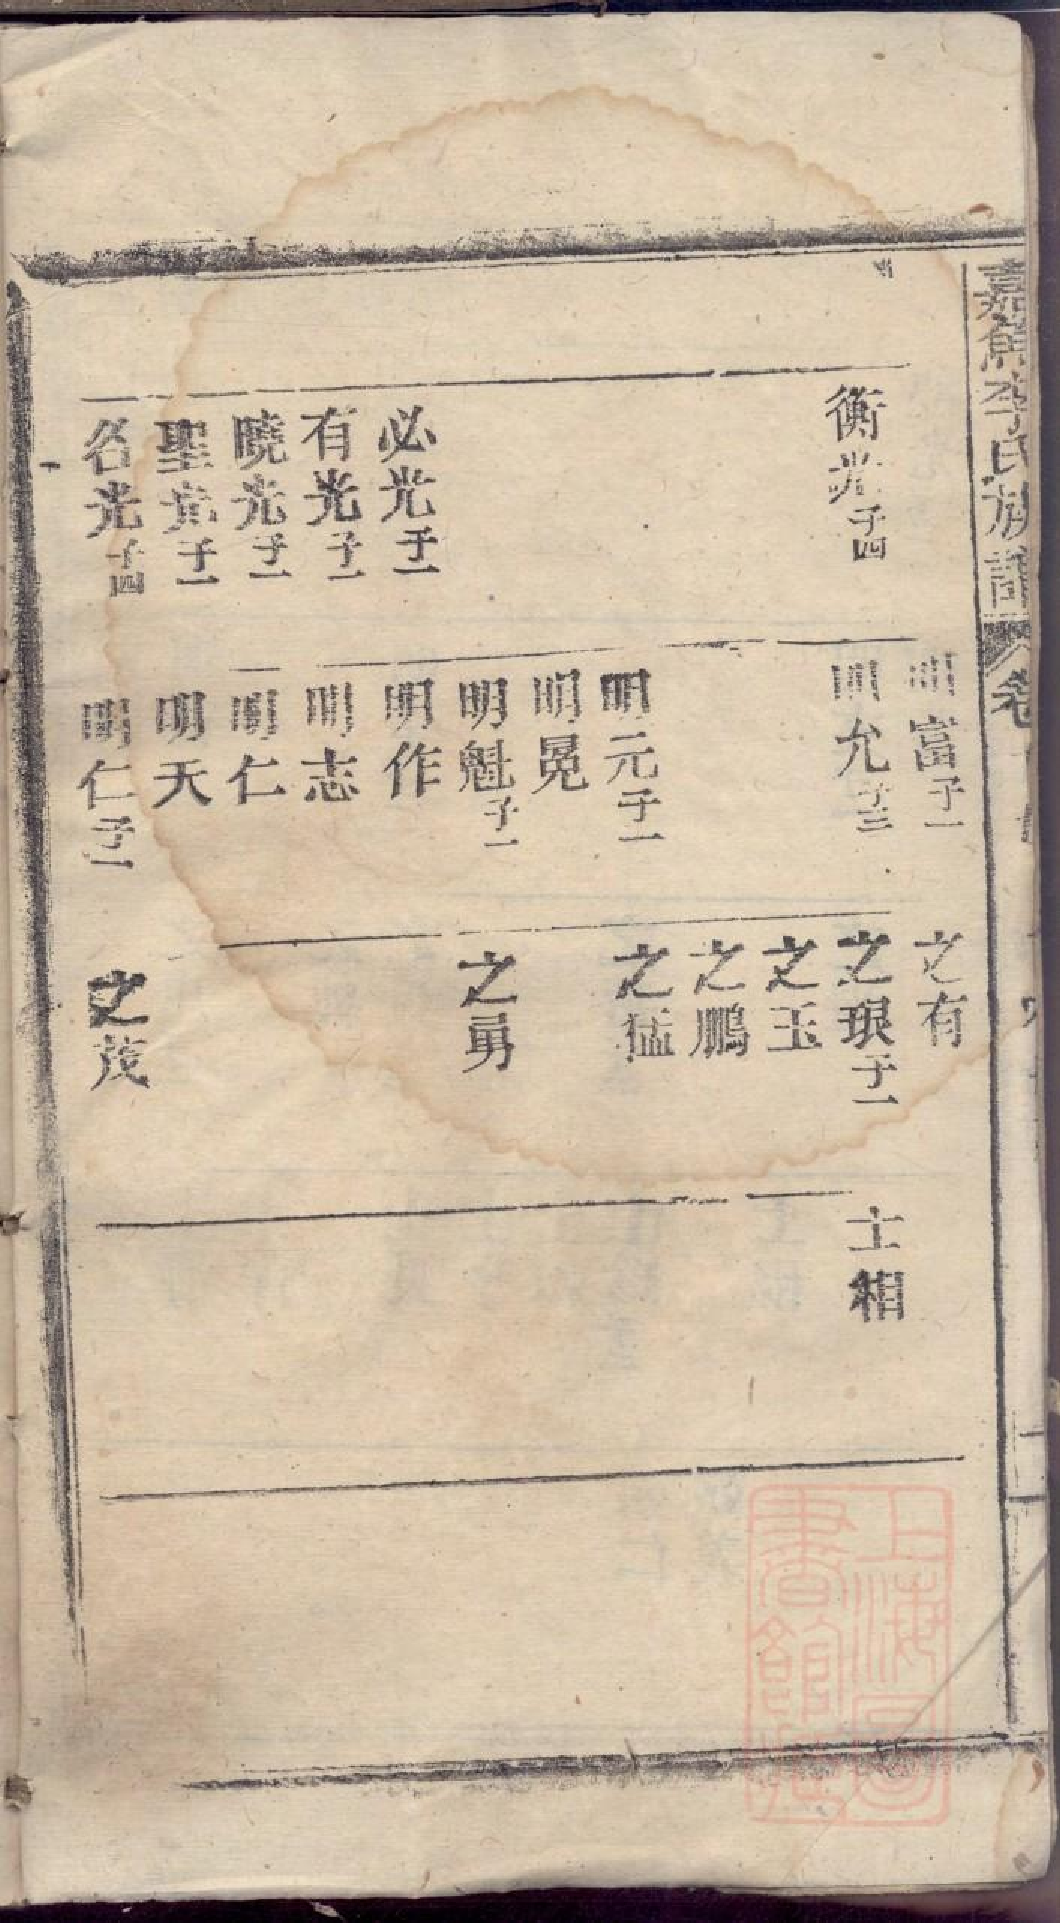 嘉魚李氏族譜 卷
明富子一
之有
衡光子四
明允子三
之珢子一
士相
之玉
之鵬
明元子一
之猛
明冕
明魁子一
之勇
必光子一
明作
有光子一
明志
曉光子一
明仁
聖光子一
明天
名光子四
明仁子一
之茂
上海圖書館藏